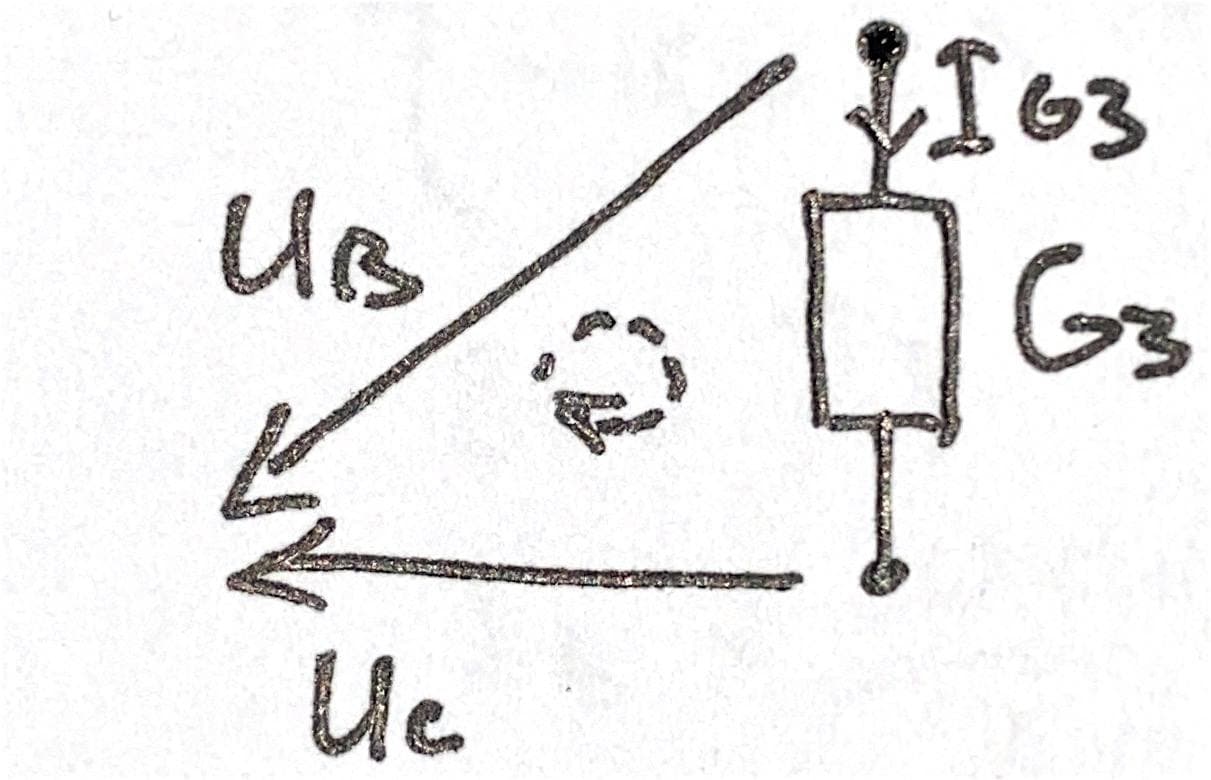 I G3
UB
G3
Uc